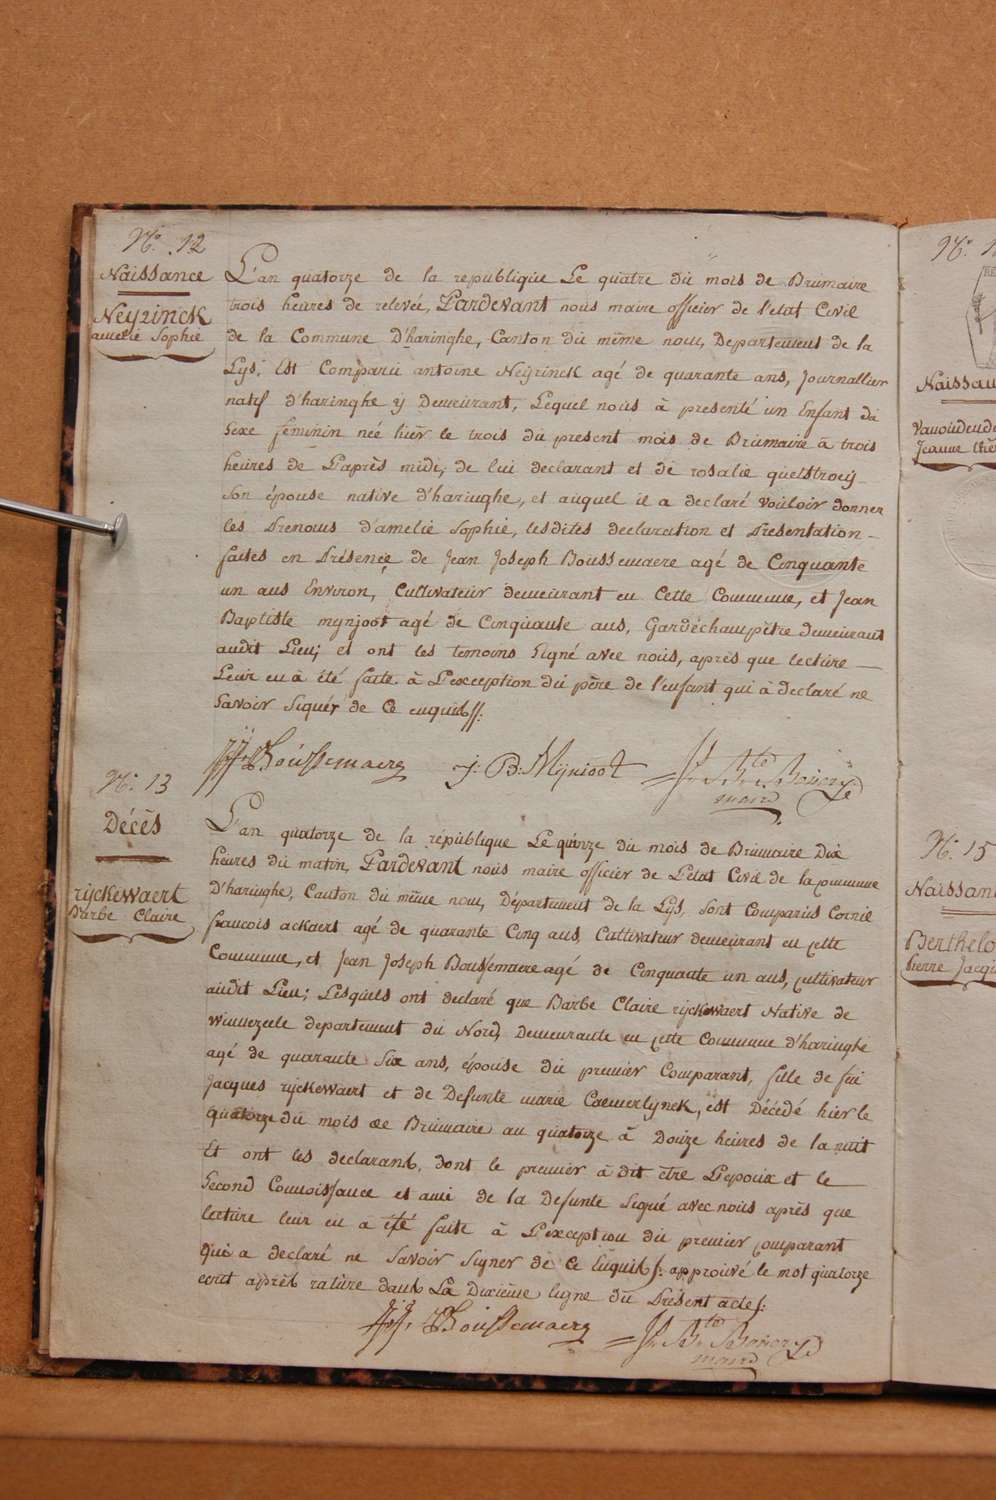 N.º 12
Naissance
Neÿrinck
amelie Sophie
L'an quatorze de la republique Le quatre du mois de Brumaire
trois heures de relevée, Pardevant nous maire officier de l'etat Civil
de la Commune D'haringhe, Canton du même nom, Departement de la
Lys, Est Comparu antoine Neÿrinck agé de quarante ans, Journallier
natif d'haringhe y Demeurant, Lequel nous à presenté un Enfant du
Sexe féminin née hier le trois du present mois de Brumaire à trois
heures de L'après midi, de lui declarant et de rosalie quelstroeÿ
Son épouse native d'haringhe, et auquel il a declaré vouloir donner
les Prenoms d'amelie Sophie, lesdites declaration et Presentation
faites en Présence de Jean Joseph Boussemaere agé de Cinquante
un ans Environ, Cultivateur demeurant en Cette Commune, et Jean
Baptiste mynjoot agé de Cinquante ans, Gardéchampêtre demeurant
audit Lieu; et ont les temoins Signé avec nous, après que lecture
Leur eu à été faite à L'exception du père de l'enfant qui à declaré ne
Savoir Signér de Ce enquis//.
J.J. Boussemaere J: B: Mynjoot
maire
N.º 13
Décès
rÿckewaert
Barbe Claire
L'an quatorze de la république Le quinze du mois de Brumaire Dix
heures du matin, Pardevant nous maire officier de L'état Civil de la Commune
D'haringhe, Canton du même nom, Département de la Lÿs, sont Comparus Cornil
francois ackaert agé de quarante Cinq ans, Cultivateur demeurant en cette
Commune, et Jean Joseph Boussemaere agé de Cinquante un ans, cultivateur
audit Lieu; Lesquels ont declaré que Barbe Claire rÿckewaert Native de
winnezeele departement du Nord, Demeurante en cette Commune d'haringhe
agé de quarante Six ans, épouse du premier Comparant, fille de feu
Jacques rÿckewaert et de Defunte marie Caemerlÿnck, est Décédé hier le
quatorze du mois de Brumaire an quatorze à Douze heures de la nuit
Et ont les declarans, dont le premier à dit être L'epoux et le
Second Connoissance et ami de la Defunte Signé avec nous après que
lecture leur eu à été faite à L'exception du premier comparant
qui a declaré ne Savoir Signer de Ce Enquis/. approuvé le mot quatorze
ecrit après rature dans La Dixieme ligne du Présent acte/.
J.J. Boussemaere
maire
N.º 15
Naissan
Berthelo
Pierre Jacq
N.º 1
Naissan
Jeanne